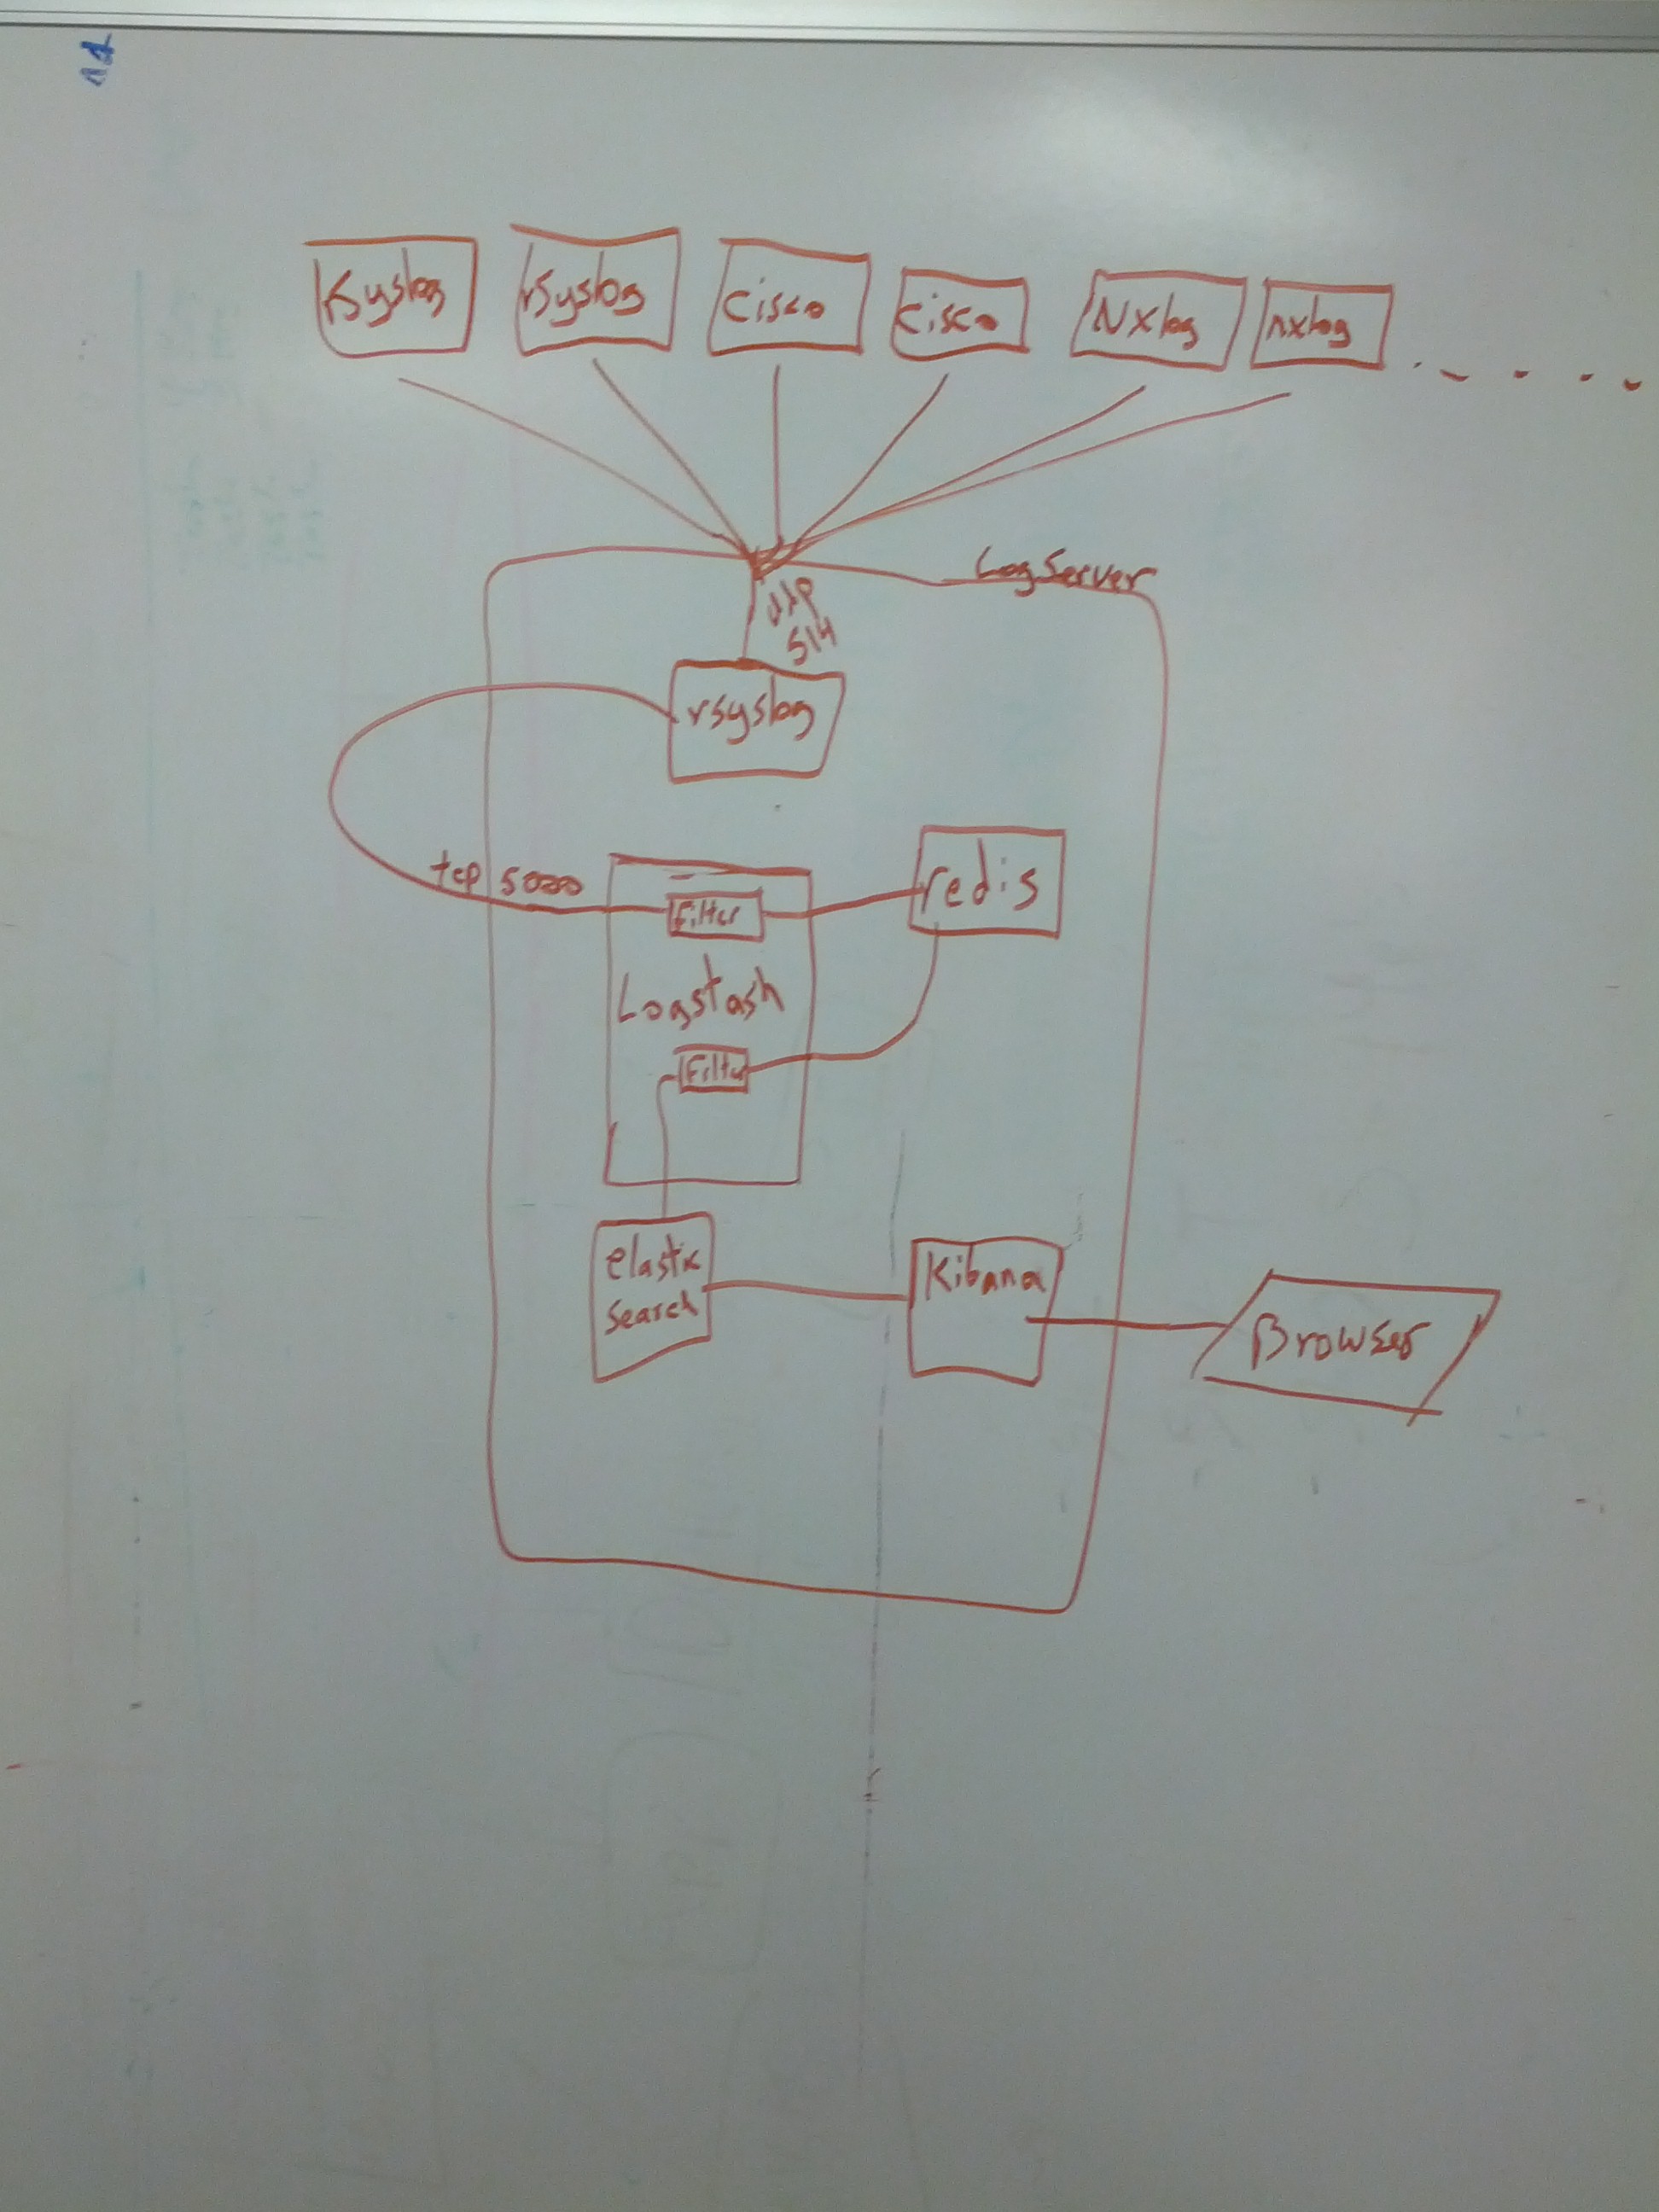 rsyslog
rsyslog
cisco
cisco
Nxlog
nxlog
LogServer
udp
514
rsyslog
tcp 5000
Filter
redis
Logstash
Filter
elastic
search
Kibana
Browser